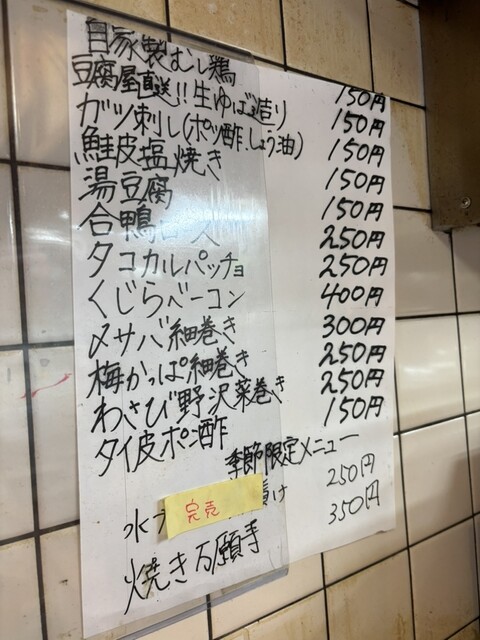 自家製むし鶏 150円
豆腐屋直送!!生ゆば造り 150円
ガツ刺し(ポン酢、しょう油) 150円
鮭皮塩焼き 150円
湯豆腐 150円
合鴨 250円
タコカルパッチョ 250円
くじらベーコン 400円
〆サバ細巻き 300円
梅かっぱ細巻き 250円
わさび野沢菜巻き 250円
タイ皮ポン酢 150円
季節限定メニュー
水 完売 け 250円
焼き万願手 350円